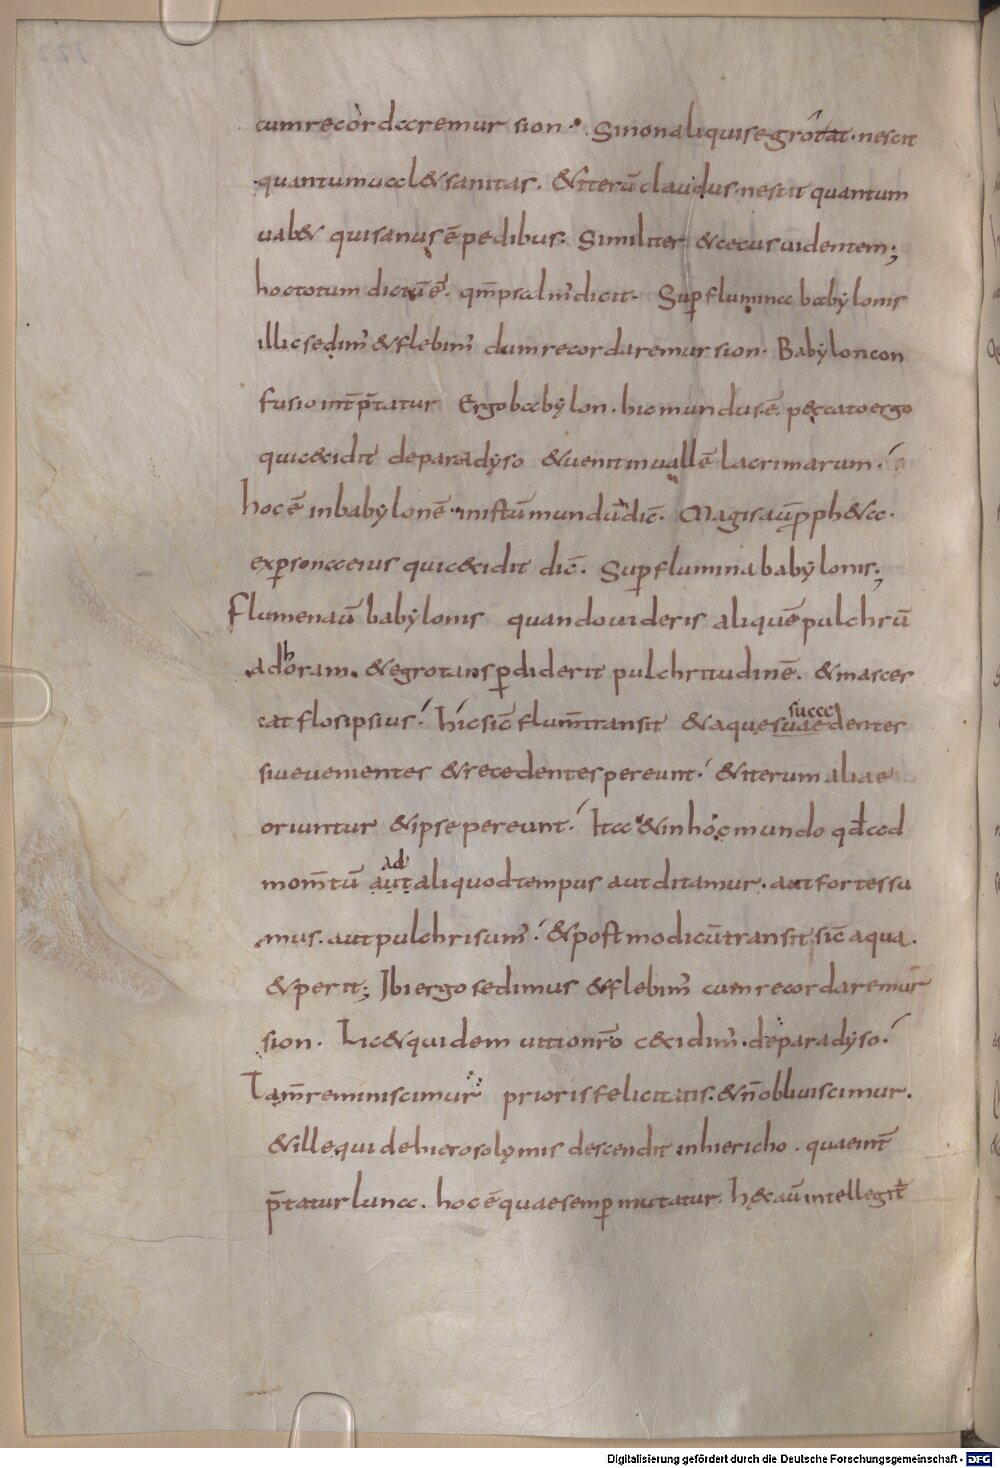 cum recordaremur sion. Si non aliquis egrotat. nescit
quantum ual& sanitas. & iterū claudus. nescit quantum
ual& qui sanus ē pedibus. Similiter & cecus uidentem;
hoc totum dictū ē. qm̄ psalm̄ dicit. Sup flumina babylonis
illic sedim̄ & flebim̄ dum recordaremur sion. Babylon con
fusio int̄p̄tatur Ergo babylon. hic mundus ē. peccato ergo
qui c&idit de paradyso & uenit in uallē lacrimarum.
hoc ē in babylonē in istū mundū dic̄. Magis aū pph&a.
ex persona eius qui c&idit dic̄. Sup flumina babylonis;
flumen aū babylonis quando uideris aliquē pulchrū
ad horam. & egrotans pdiderit pulchritudinē. & marces
cat flos ipsius. hic sic̄ flum̄ transit & aque suae succedentes
siue uenientes & recedentes pereunt. & iterum aliae
oriuntur & ipse pereunt. Ita & in hoc mundo qđ ad
mom̄tū aut ad aliquod tempus aut ditamur. aut fortes su
mus. aut pulchri sum̄. & post modicū transit sic̄ aqua.
& perit; Ibi ergo sedimus & flebim̄ cum recordaremur
sion. Lic& quidem uitio nr̄o c&idim̄. de paradyso.
Tam̄ reminiscimur prioris felicitatis. & n̄ obliuiscimur.
& ille qui de hierosolymis descendit in hiericho. quae int̄
p̄tatur luna. hoc ē quae semper mutatur. h&c aū intellegit̄
Digitalisierung gefördert durch die Deutsche Forschungsgemeinschaft - DFG